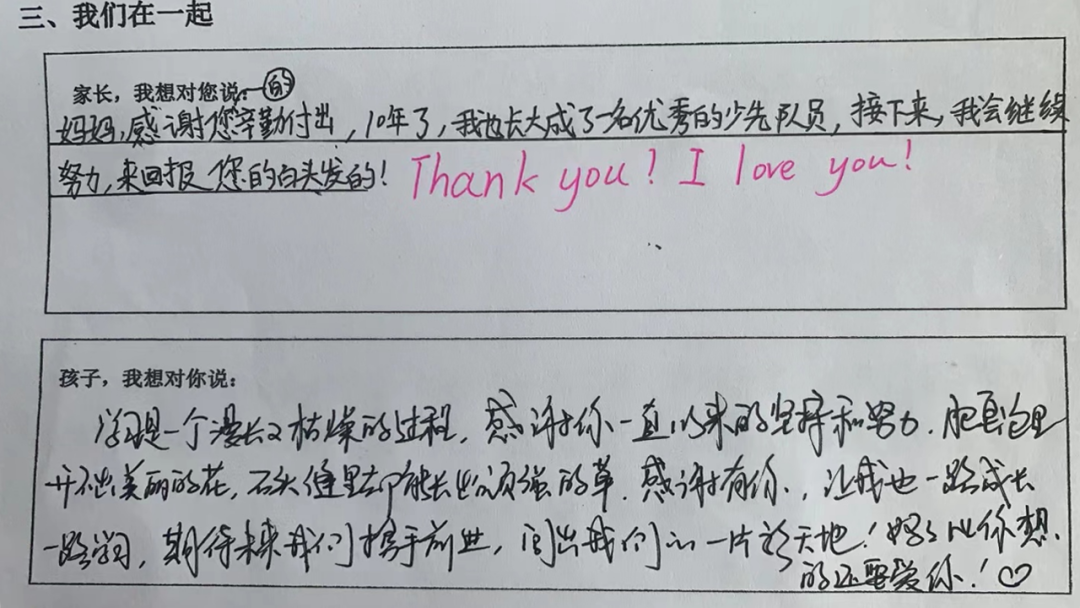 三、我们在一起
家长，我想对您说： 的
妈妈，感谢您辛勤付出，10年了，我也长大成了一名优秀的少先队员，接下来，我会继续
努力，来回报您的白头发的！Thank you! I love you!
孩子，我想对你说：
学习是一个漫长又枯燥的过程，感谢你一直以来的坚持和努力，肥皂泡里
开不出美丽的花，石头缝里却能长出顽强的草，感谢有你，让我也一路成长
一路学习，期待未来我们携手前进，闯出我们的一片新天地！妈妈比你想
的还要爱你！♡